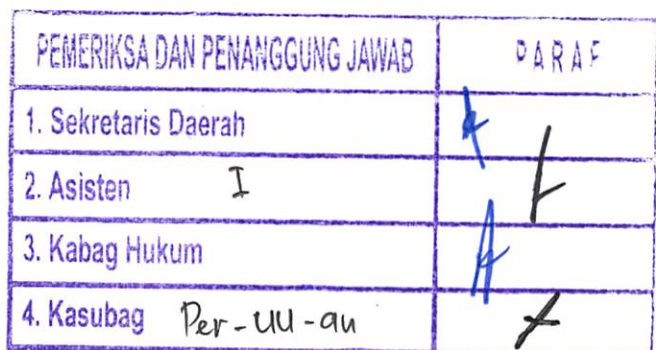 PEMERIKSA DAN PENANGGUNG JAWAB PARAF
1. Sekretaris Daerah
2. Asisten I
3. Kabag Hukum
4. Kasubag Per-UU-an